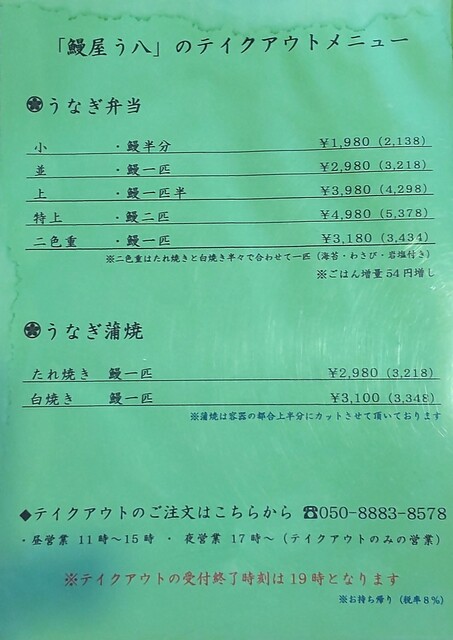 「鰻屋う八」のテイクアウトメニュー
うなぎ弁当
小 ・鰻半分 ¥1,980(2,138)
並 ・鰻一匹 ¥2,980(3,218)
上 ・鰻一匹半 ¥3,980(4,298)
特上 ・鰻二匹 ¥4,980(5,378)
二色重 ・鰻一匹 ¥3,180(3,434)
※二色重はたれ焼きと白焼き半々で合わせて一匹(海苔・わさび・岩塩付き)
※ごはん増量54円増し
うなぎ蒲焼
たれ焼き 鰻一匹 ¥2,980(3,218)
白焼き 鰻一匹 ¥3,100(3,348)
※蒲焼は容器の都合上半分にカットさせて頂いております
◆テイクアウトのご注文はこちらから ☎050-8883-8578
・昼営業 11時～15時 ・ 夜営業 17時～(テイクアウトのみの営業)
※テイクアウトの受付終了時刻は19時となります
※お持ち帰り(税率8%)